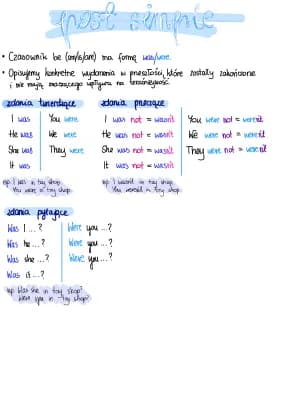 past simple
• Czasownik be (am/is/are) ma formę was/were.
• Opisujemy konkretne wydarzenia w przeszłości, które zostały zakończone
i nie mają znaczącego wpływu na teraźniejszość
zdania twierdzące
I was You were
He was We were
She was They were
It was
np. I was in toy shop
You were in toy shop
zdania przeczące
I was not = wasn't You were not = weren't
He was not = wasn't We were not = weren't
She was not = wasn't They were not = weren't
It was not = wasn't
np. I wasn't in toy shop
You weren't in toy shop
zdania pytające
Was I ...? Were you ...?
Was he ...? Were you ...?
Was she ...? Were you ...?
Was it ...?
np. Was she in toy shop?
Were you in toy shop?